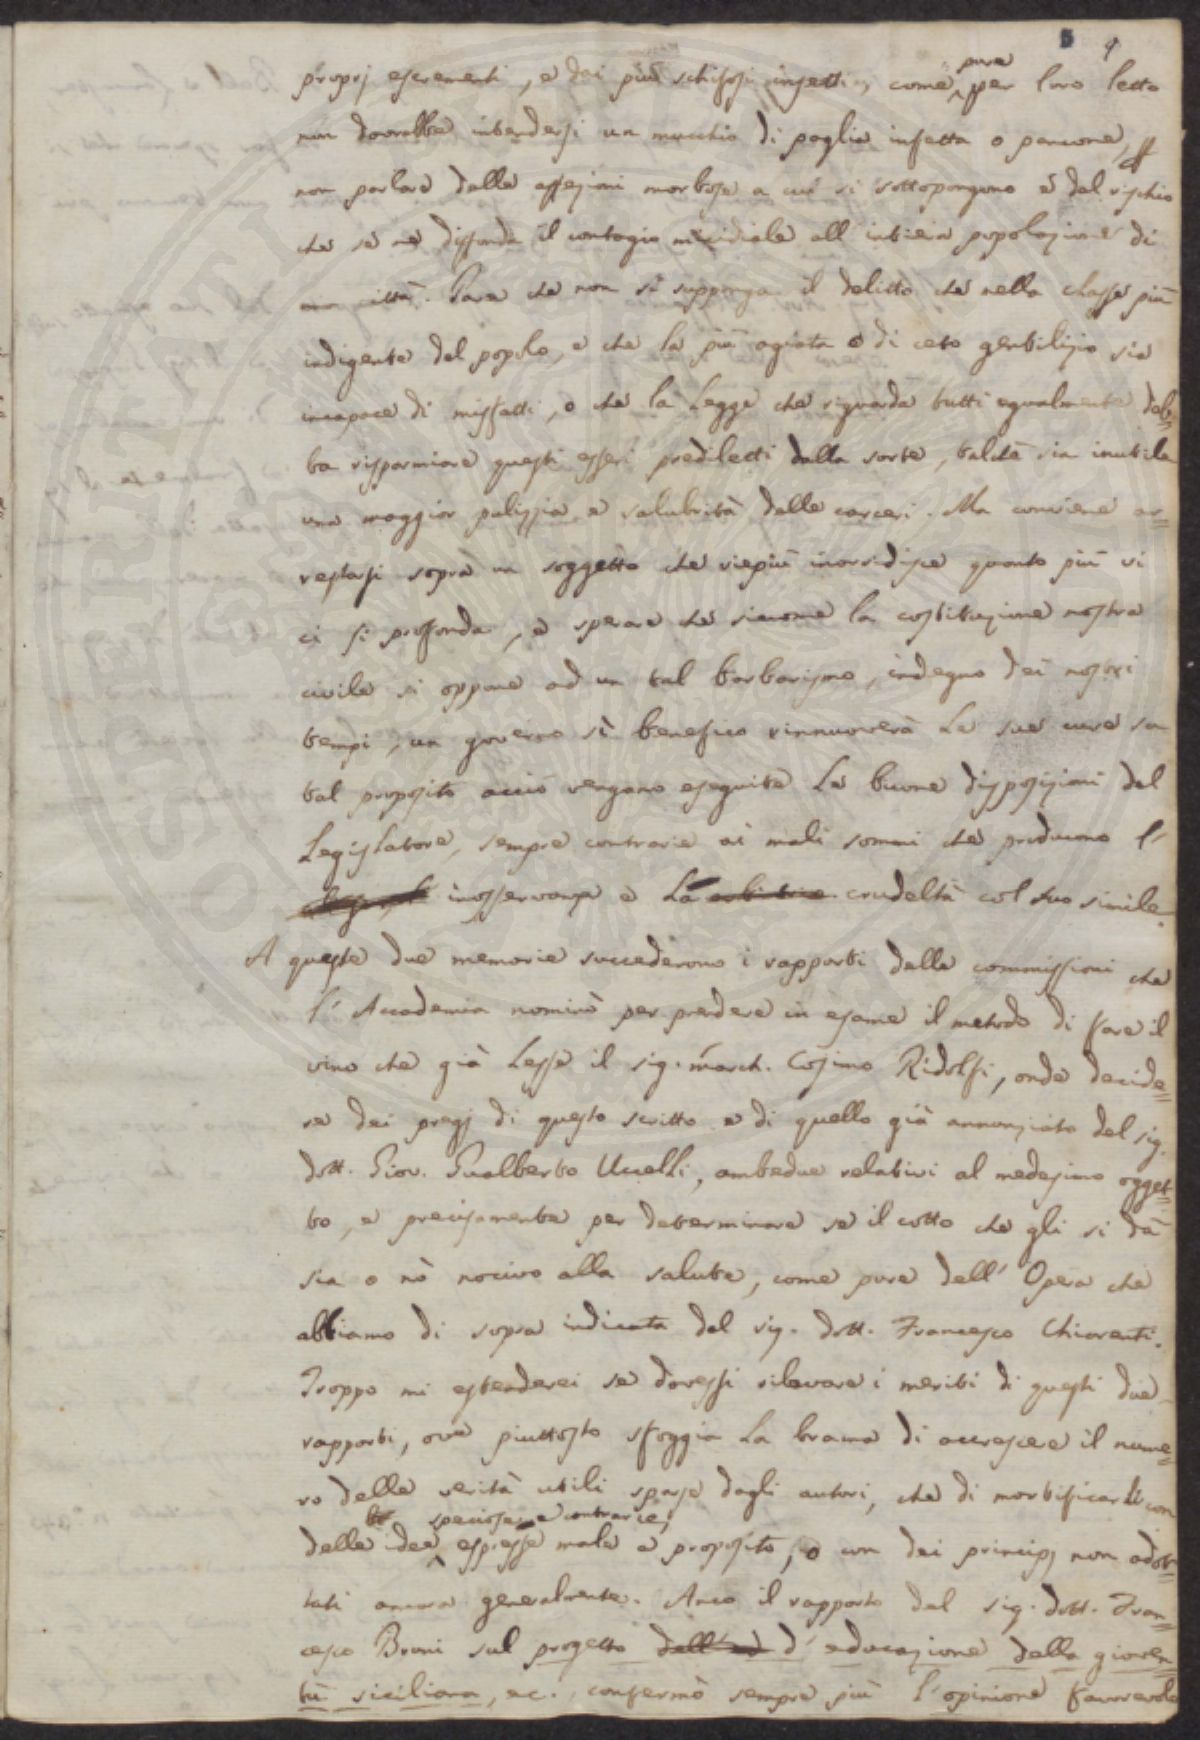 5 9
proprj escrementi, e dei più schifosi insetti, come pure per loro letto
non dovrebbe intendersi un mucchio di paglia infetta o pancone,
non parlare delle affezioni morbose a cui si sottopongono e del rischio
che se ne diffonda il contagio micidiale all'intiera popolazione di
una città. Pare che non si supponga il delitto che nella classe più
indigente del popolo, e che la più agiata o di ceto gentilizio sia
incapace di misfatti, o che la Legge che riguarda tutti egualmente deb=
ba risparmiare questi esseri prediletti dalla sorte, talchè sia inutile
una maggior pulizzia e salubrità delle carceri. Ma conviene ar=
restarsi sopra un soggetto che viepiù inorridisce quanto più vi
ci si profonda, e sperare che siccome la costituzione nostra
civile si oppone ad un tal barbarismo, indegno dei nostri
tempi, un governo sì benefico rinnuoverà le sue cure su
tal proposito acciò vengano eseguite le buone disposizioni del
Legislatore, sempre contrarie ai mali sommi che producono l'
inosservanza e la crudeltà col suo simile.
A queste due memorie succederono i rapporti delle commissioni che
l'Accademia nominò per prendere in esame il metodo di fare il
vino che già lesse il sig. march. Cosimo Ridolfi, onde decide=
re dei pregj di questo scritto e di quello già annunziato del sig.
dott. Giov. Gualberto Uccelli, ambedue relativi al medesimo ogget=
to, e precisamente per determinare se il cotto che gli si dà
sia o nò nocivo alla salute, come pure dell'Opera che
abbiamo di sopra indicata del sig. dott. Francesco Chiarenti.
Troppo mi estenderei se dovessi rilevare i meriti di questi due
rapporti, ove piuttosto sfoggia la brama di accrescere il nume=
ro delle verità utili sparse dagli autori, che di mortificarli con
delle idee speciose, e contrarie, espresse male a proposito, o con dei principj non adot=
tati ancora generalmente. Anco il rapporto del sig. dott. Fran=
cesco Bruni sul progetto dell'ed d'educazione della gioven=
tù siciliana, ec., confermò sempre più l'opinione favorevole